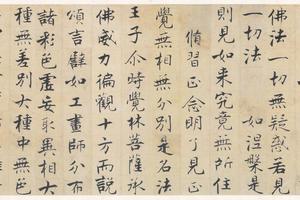 佛法一切無疑惑若見
一切法　如涅槃是
則見如来究竟無所住
脩習正念明了見正
覺無相無分別是名法
王子尒時覺林菩薩承
佛威力徧觀十方而説
頌言譬如工畫師分布
諸彩色虛妄取異相大
種無差別大種中無色